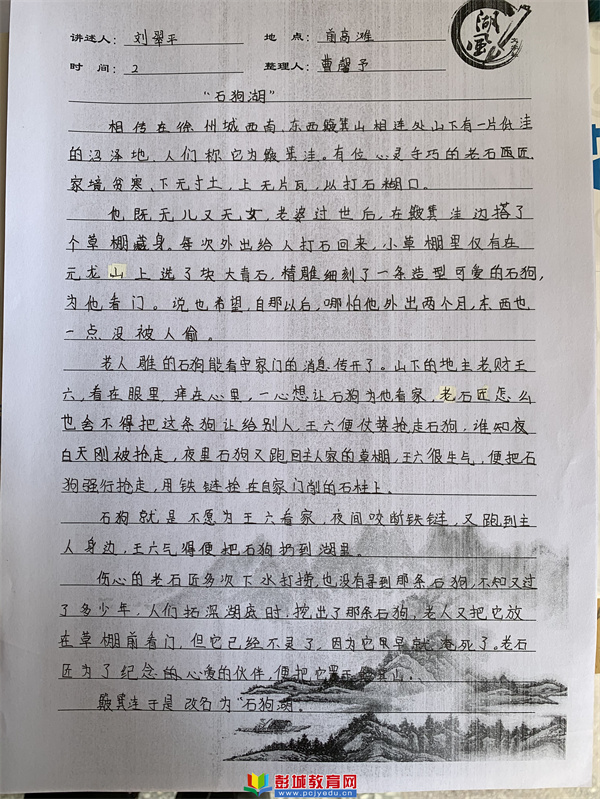 讲述人：刘翠平 地点：前高滩
时间：2 整理人：曹馨予
“石狗湖”
相传在徐州城西南，东西簸箕山相连处山下有一片低洼
的沼泽地，人们称它为簸箕洼。有位心灵手巧的老石匠
家境贫寒、下无寸土，上无片瓦，以打石糊口。
他既无儿又无女，老婆过世后，在簸箕洼边搭了
个草棚藏身。每次外出给人打石回来，小草棚里仅有在
元龙山上选了块大青石，精雕细刻了一条造型可爱的石狗，
为他看门。说也希望，自那以后，哪怕他外出两个月，东西也
一点没被人偷。
老人雕的石狗能看守家门的消息传开了。山下的地主老财王
六，看在眼里，痒在心里，一心想让石狗为他看家，老石匠怎么
也舍不得把这条狗让给别人，王六便仗势抢走石狗，谁知夜
白天刚被抢走，夜里石狗又跑回主人家的草棚，王六很生气，便把石
狗强行抢走，用铁链拴在自家门前的石柱上。
石狗就是不愿为王六看家，夜间咬断铁链，又跑到主
人身边，王六气得便把石狗扔到湖里。
伤心的老石匠多次下水打捞，也没有寻到那条石狗，不知又过
了多少年，人们拓深湖底时，挖出了那条石狗，老人又把它放
在草棚前看门，但它已经不灵了，因为它早早就淹死了。老石
匠为了纪念的心爱的伙伴，便把它置于簸箕山。
簸箕洼于是改名为“石狗湖。
彭城教育网
www.pcjyedu.cn